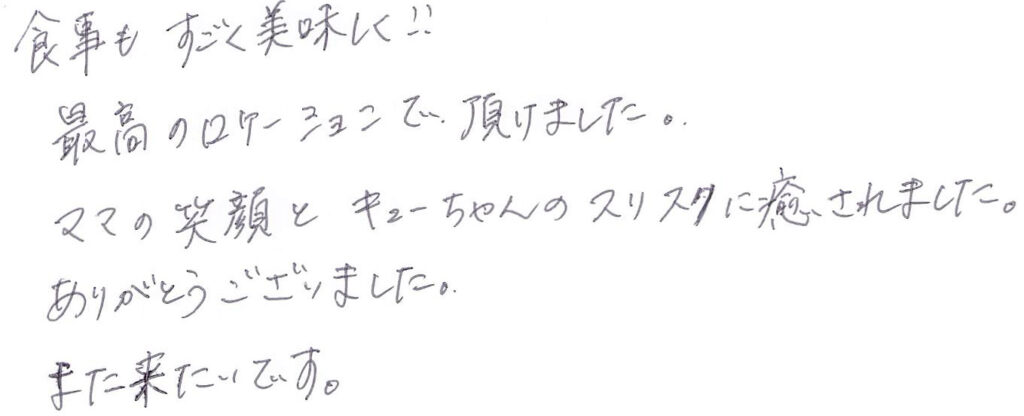 食事も すごく美味しく!!
最高のロケーションで頂けました。
ママの笑顔と キューちゃんのスリスリに癒されました。
ありがとうございました。
また来たいです。